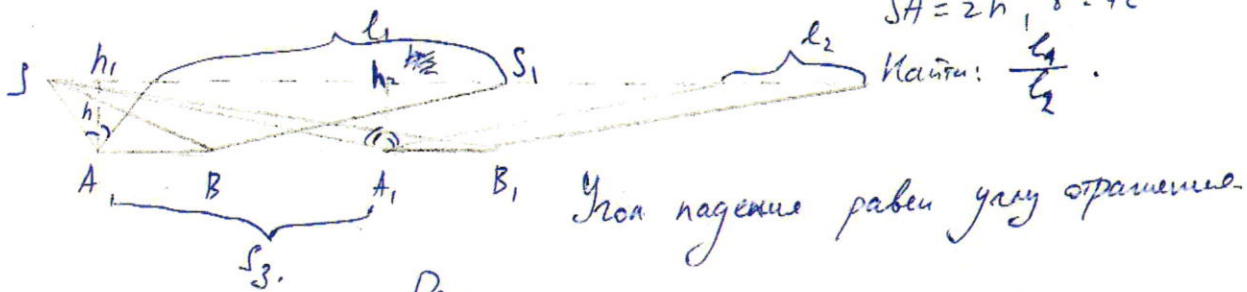 SA = 2h,
l₁
l₂
S h₁ h₂ S₁ Найти: l₁/l₂.
h
A B A₁ B₁ Угол падения равен углу отражения.
S₃.